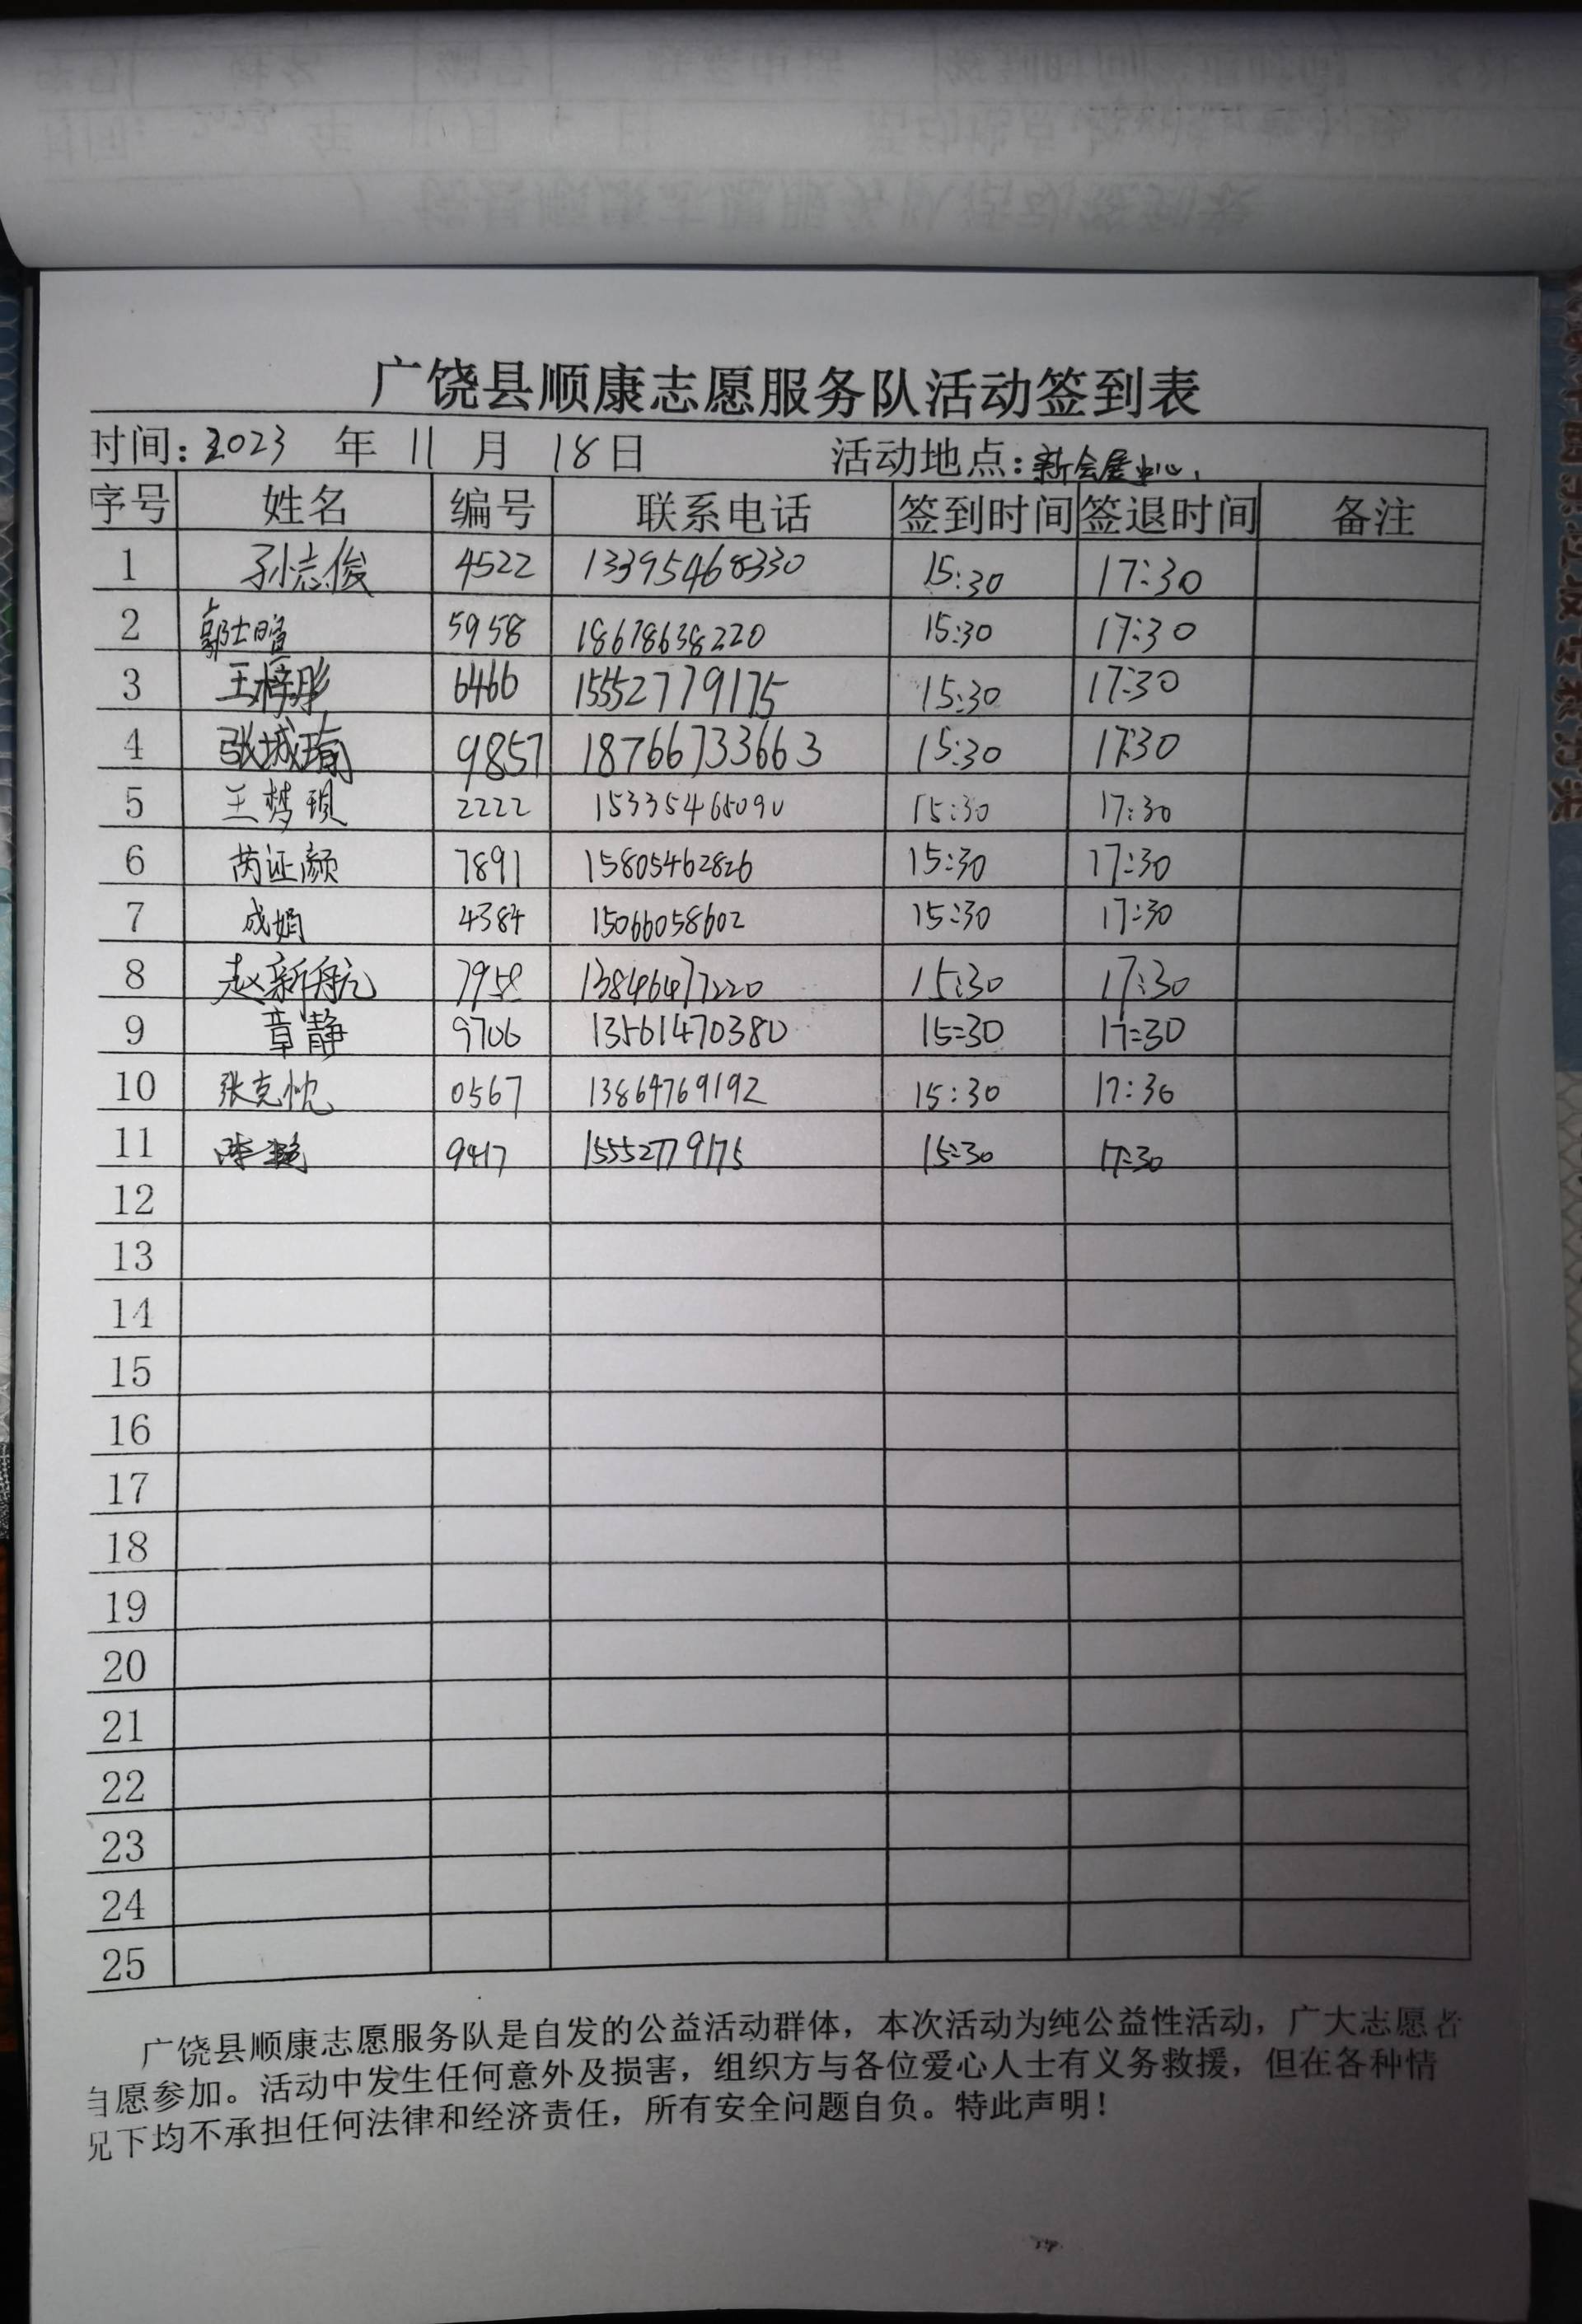 广饶县顺康志愿服务队活动签到表
时间: 2023 年 11 月 18日 活动地点: 新会展中心
序号 姓名 编号 联系电话 签到时间 签退时间 备注
1 孙志俊 4522 13395468330 15:30 17:30
2 郭士暄 5958 18678638220 15:30 17:30
3 王梓彤 6466 15552779175 15:30 17:30
4 张城瑜 9857 18766733663 15:30 17:30
5 王梦 2222 15335465090 15:30 17:30
6 芮证颜 7891 15805462826 15:30 17:30
7 成娟 4384 15066058602 15:30 17:30
8 赵新航 7958 13846477220 15:30 17:30
9 章静 9706 13561470380 15:30 17:30
10 张克忱 0567 13864769192 15:30 17:30
11 陈 9417 15552779175 15:30 17:30
12
13
14
15
16
17
18
19
20
21
22
23
24
25
广饶县顺康志愿服务队是自发的公益活动群体，本次活动为纯公益性活动，广大志愿者
自愿参加。活动中发生任何意外及损害，组织方与各位爱心人士有义务救援，但在各种情
况下均不承担任何法律和经济责任，所有安全问题自负。特此声明！